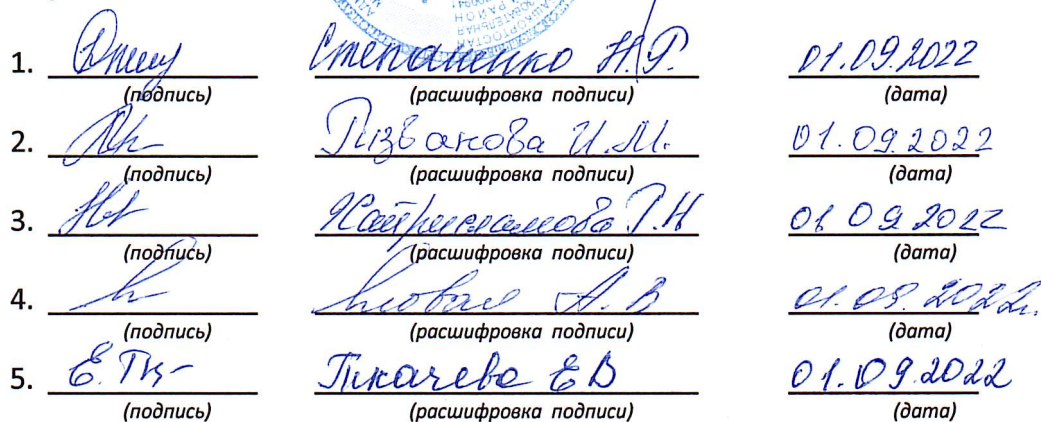 ВАТЕЛЬНАЯ
РАЙОН
1. Степаненко Н.Г. 01.09.2022
(подпись) (расшифровка подписи) (дата)
2. И.М. 01.09.2022
(подпись) (расшифровка подписи) (дата)
3. Хайрисламова Г.Н 01 09 2022
(подпись) (расшифровка подписи) (дата)
4. А.В 01.09.2022г.
(подпись) (расшифровка подписи) (дата)
5. Е. Тк Ткачева ЕВ 01.09.2022
(подпись) (расшифровка подписи) (дата)